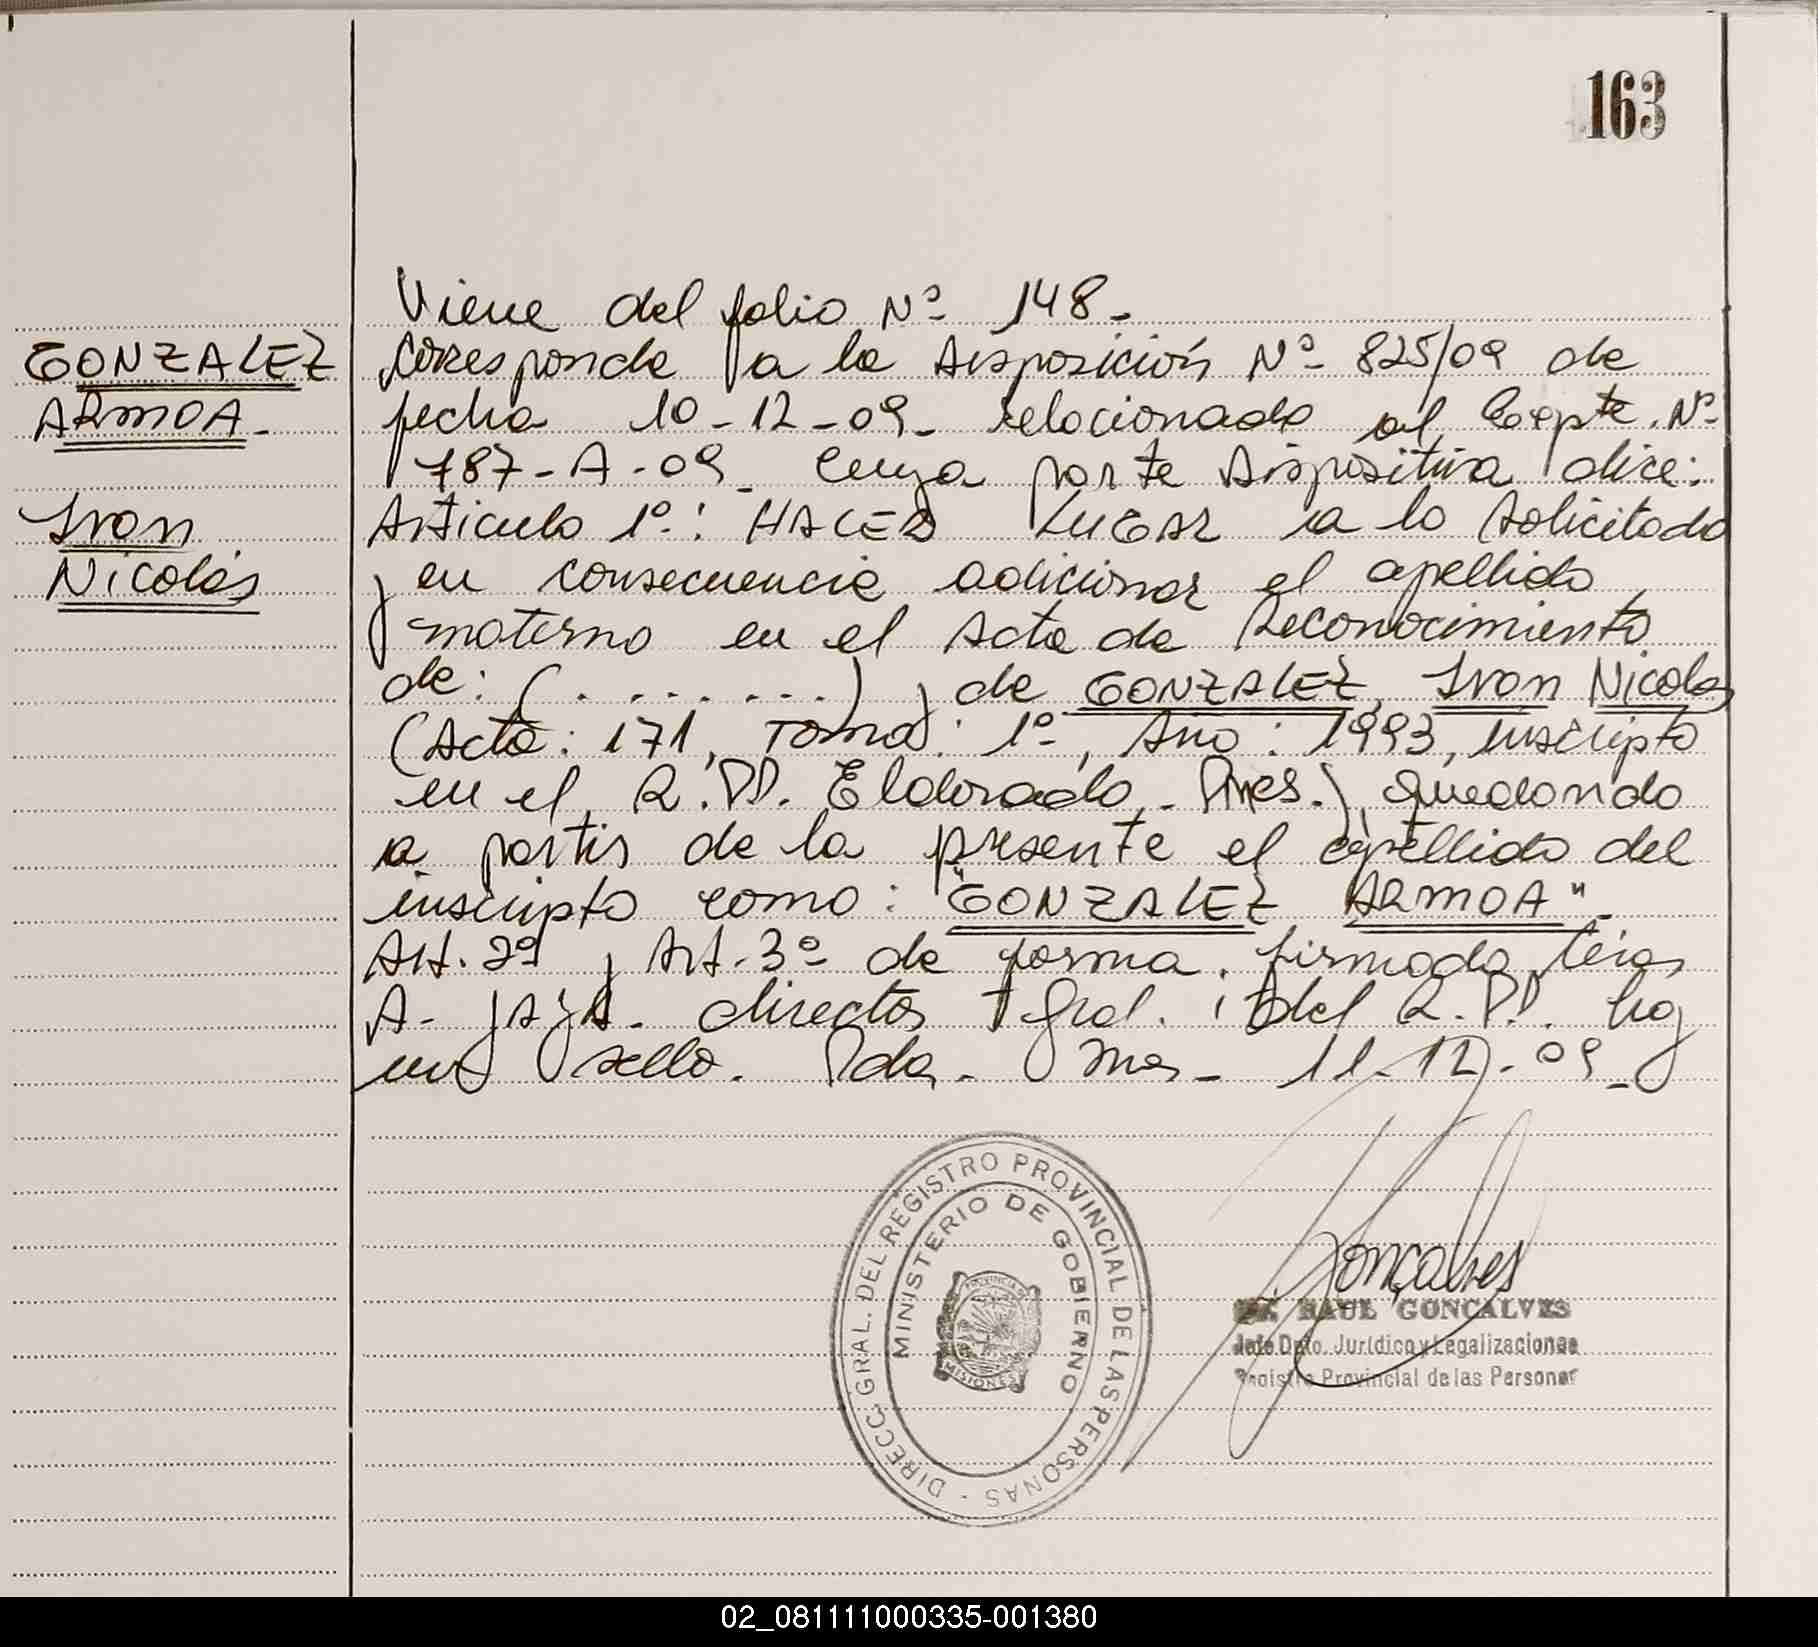 163
GONZALEZ
ARMOA-
Ivan
Nicolás
Viene del folio Nº 148-
Corresponde a la Disposición Nº 825/09 de
fecha 10-12-09- relacionada al Expte. Nº
787-A-09- Cuya parte dispositiva dice:
Articulo 1º: HACER LUGAR a lo solicitado
y en consecuencia adicionar el apellido
materno en el Acta de Reconocimiento
de: (........) y de GONZALEZ, Ivan Nicolas
(Acta: 171, Tomo: 1º, Año: 1993, inscripto
en el R.PP. Eldorado - Mnes.) quedando
a partir de la presente el apellido del
inscripto como: "GONZALEZ ARMOA"-
Art. 2º y Art. 3º de forma. firmado
A- directos Gral. del R.PP. hay
un sello. Pdas- Mnes- 11-12-09-
DIRECC. GRAL. DEL REGISTRO PROVINCIAL DE LAS PERSONAS -
MINISTERIO DE GOBIERNO
PROVINCIA DE
MISIONES
Gonçalves
RAUL GONCALVES
Jefe Dpto. Jurídico y Legalizaciones
Registro Provincial de las Personas
02_081111000335-001380